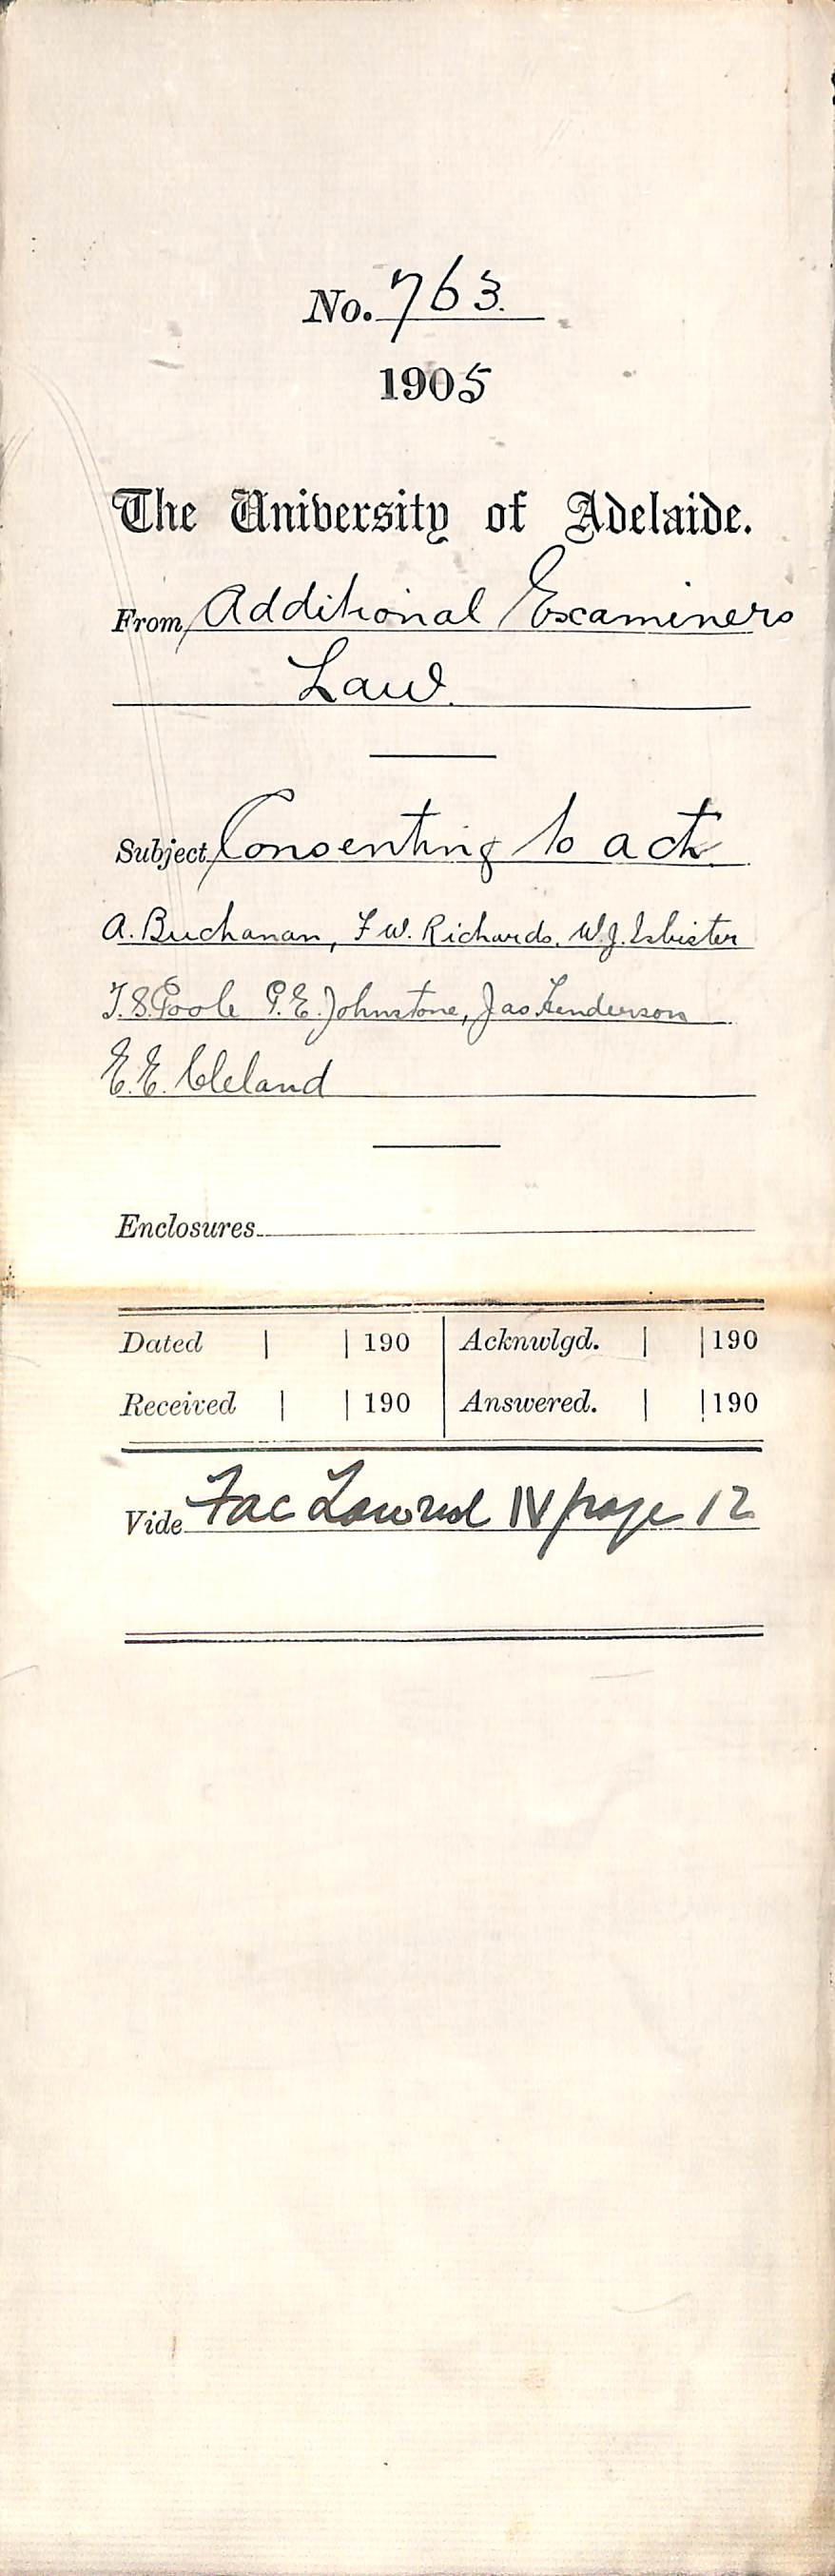 No. 763.
1905
The University of Adelaide.
From Additional Examiners
Law.
Subject Consenting to act.
A. Buchanan, F. W. Richards, W. J. Isbister
T. S. Poole P. E. Johnstone, Jas Henderson
E. E. Cleland
Enclosures
Dated | | 190 Acknwlgd. | | 190
Received | | 190 Answered. | | 190
Vide Fac Law vol IV page 12